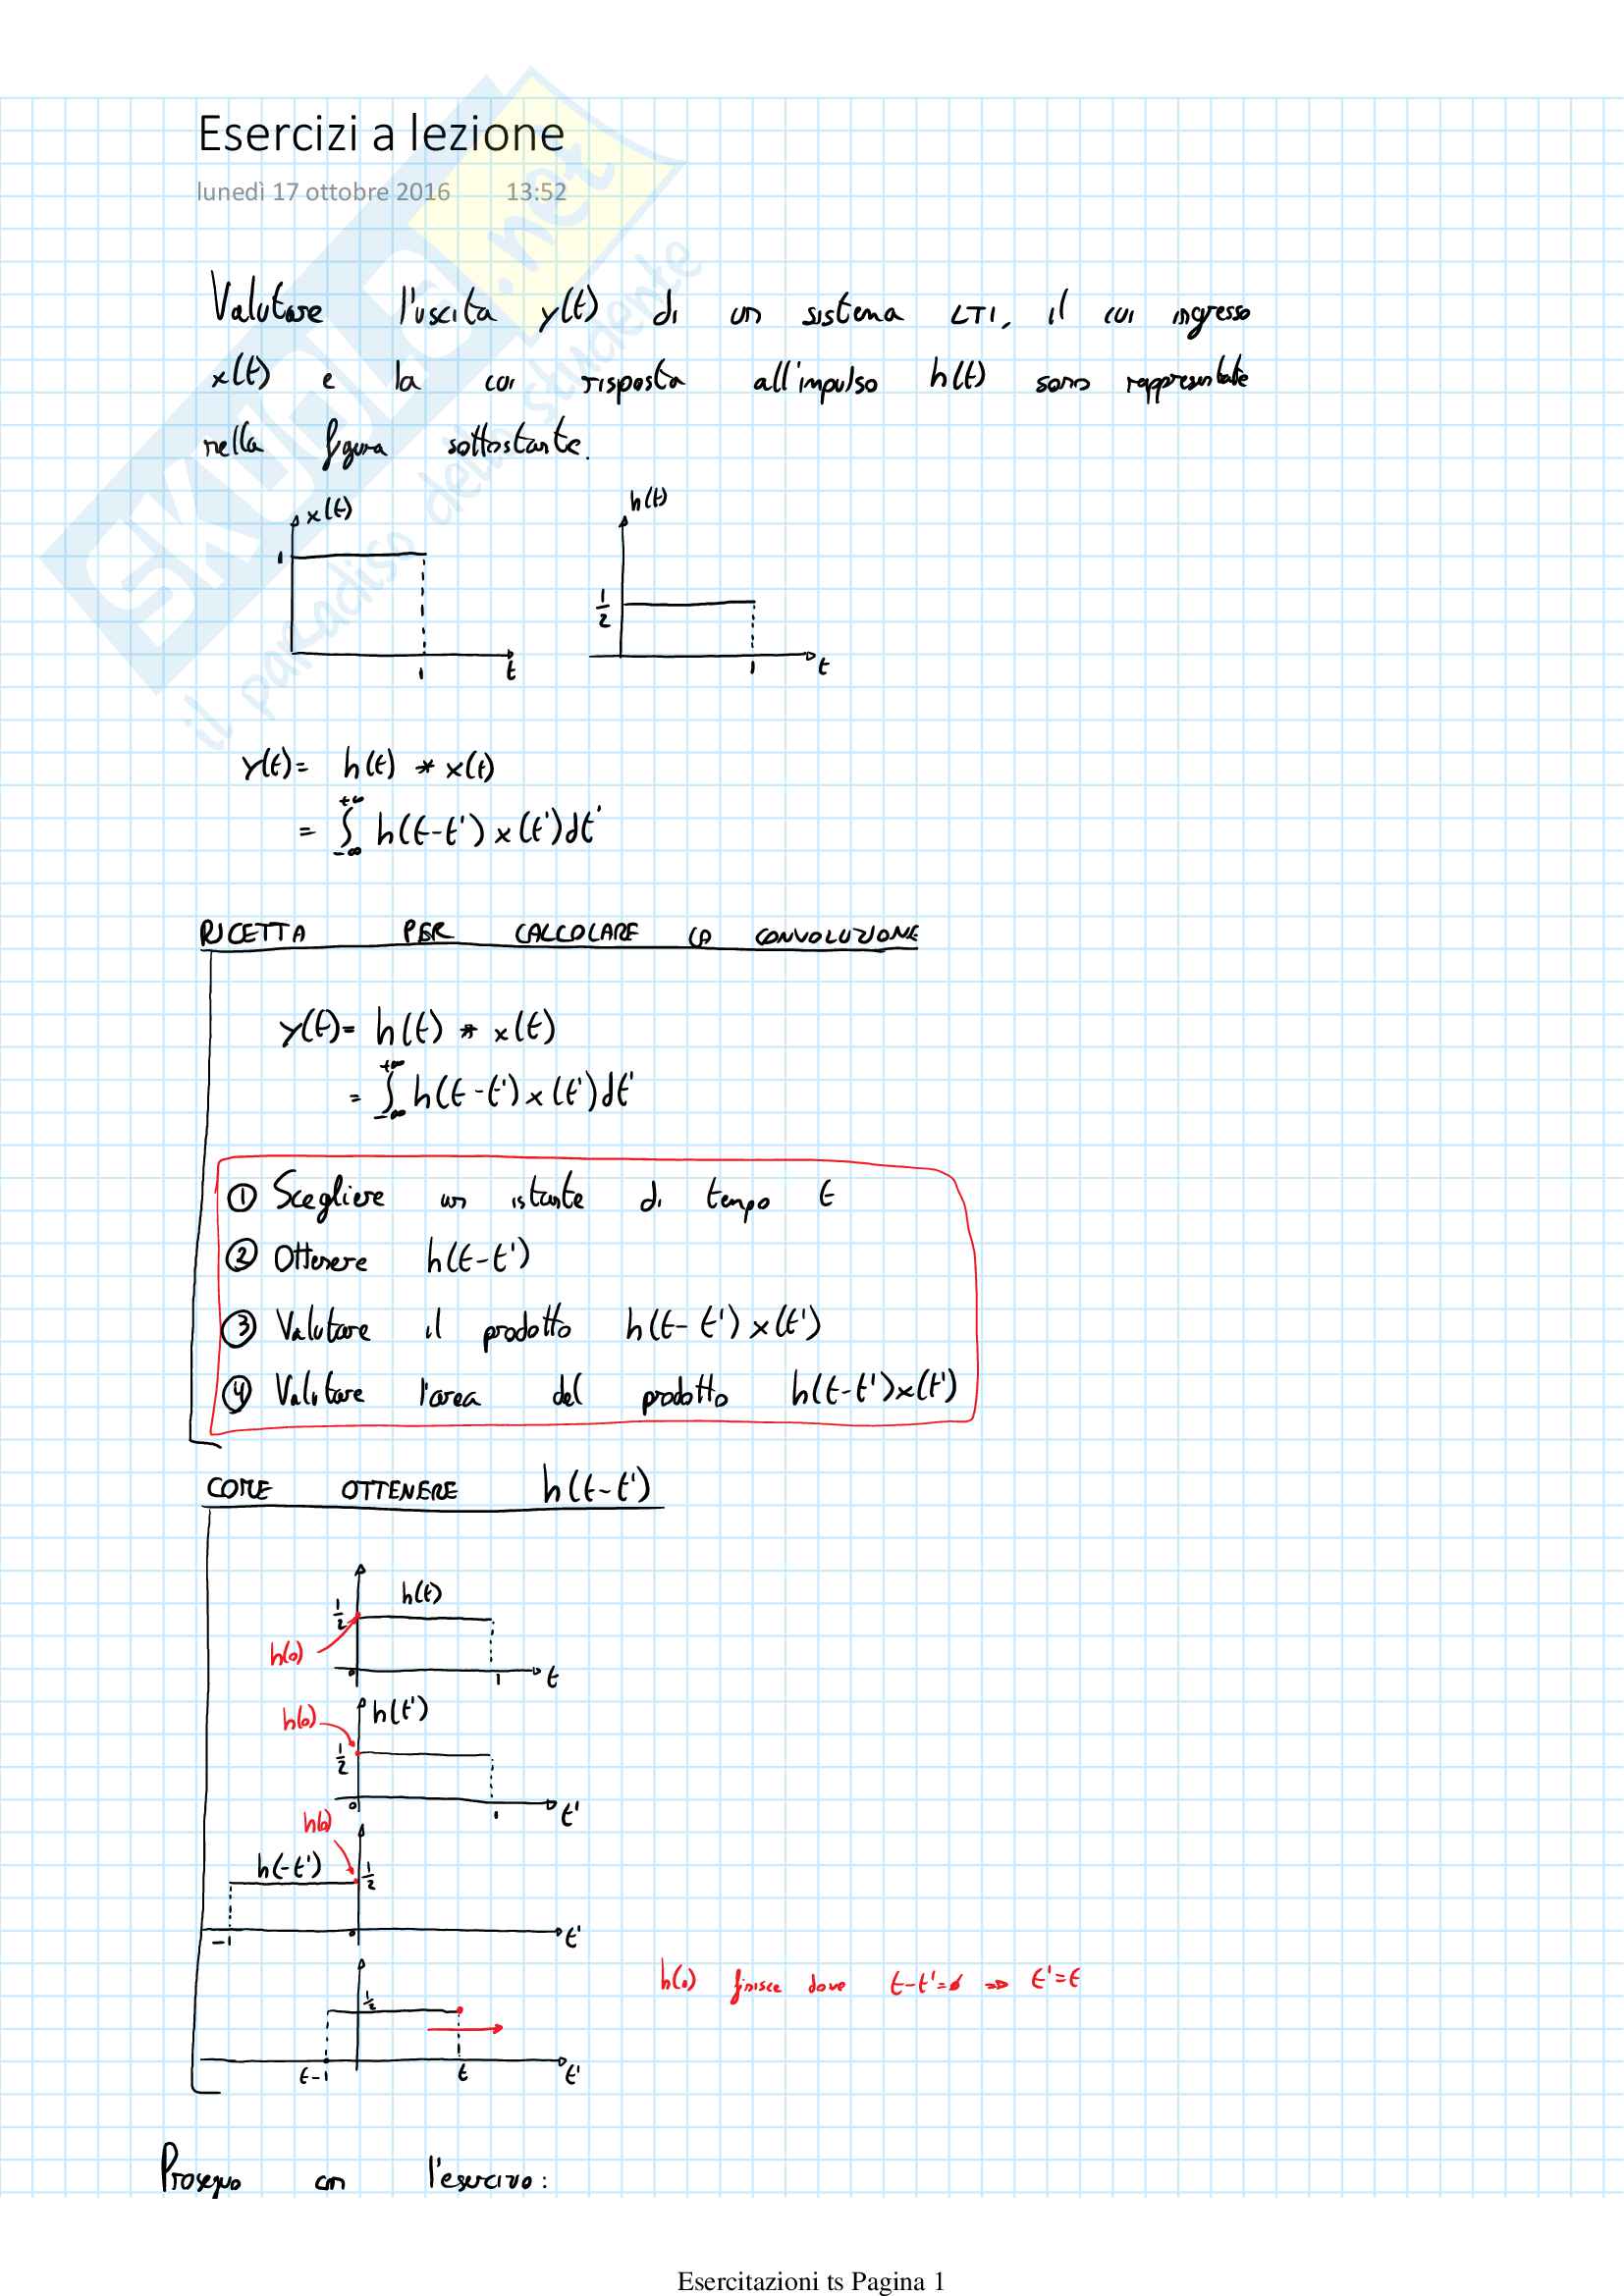 Esercizi a lezione
lunedì 17 ottobre 2016 13:52
SKUOLA.net
il paradiso dello studente
Valutare l'uscita y(t) di un sistema LTI, il cui ingresso
x(t) e la cui risposta all'impulso h(t) sono rappresentate
nella figura sottostante.
x(t) h(t)
1 1/2
1 t 1 t
y(t)= h(t) * x(t)
= ∫_{-∞}^{+∞} h(t-t') x(t')dt'
RICETTA PER CALCOLARE LA CONVOLUZIONE
y(t)= h(t) * x(t)
= ∫_{-∞}^{+∞} h(t-t') x(t')dt'
① Scegliere un istante di tempo t
② Ottenere h(t-t')
③ Valutare il prodotto h(t-t')x(t')
④ Valutare l'area del prodotto h(t-t')x(t')
COME OTTENERE h(t-t')
h(t)
1/2
h(0)
0 1 t
h(0) h(t')
1/2
0 1 t'
h(0)
h(-t') 1/2
-1 0 t'
h(0) finisce dove t-t'=0 ⇒ t'=t
1/2
t-1 t t'
Proseguo con l'esercizio:
Esercitazioni ts Pagina 1